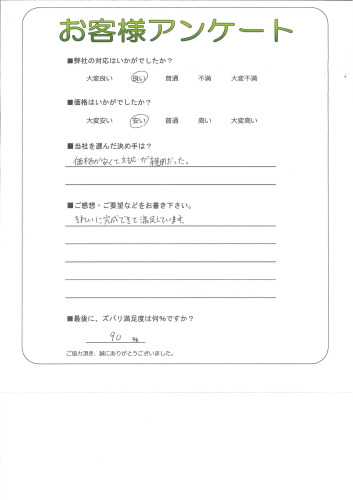 お客様アンケート
■弊社の対応はいかがでしたか？
大変良い 良い 普通 不満 大変不満
■価格はいかがでしたか？
大変安い 安い 普通 高い 大変高い
■当社を選んだ決め手は？
価格が安くて対応が
■ご感想・ご要望などをお書き下さい。
きれいに完成できて満足しています
■最後に、ズバリ満足度は何%ですか？
90 %
ご協力頂き、誠にありがとうございました。